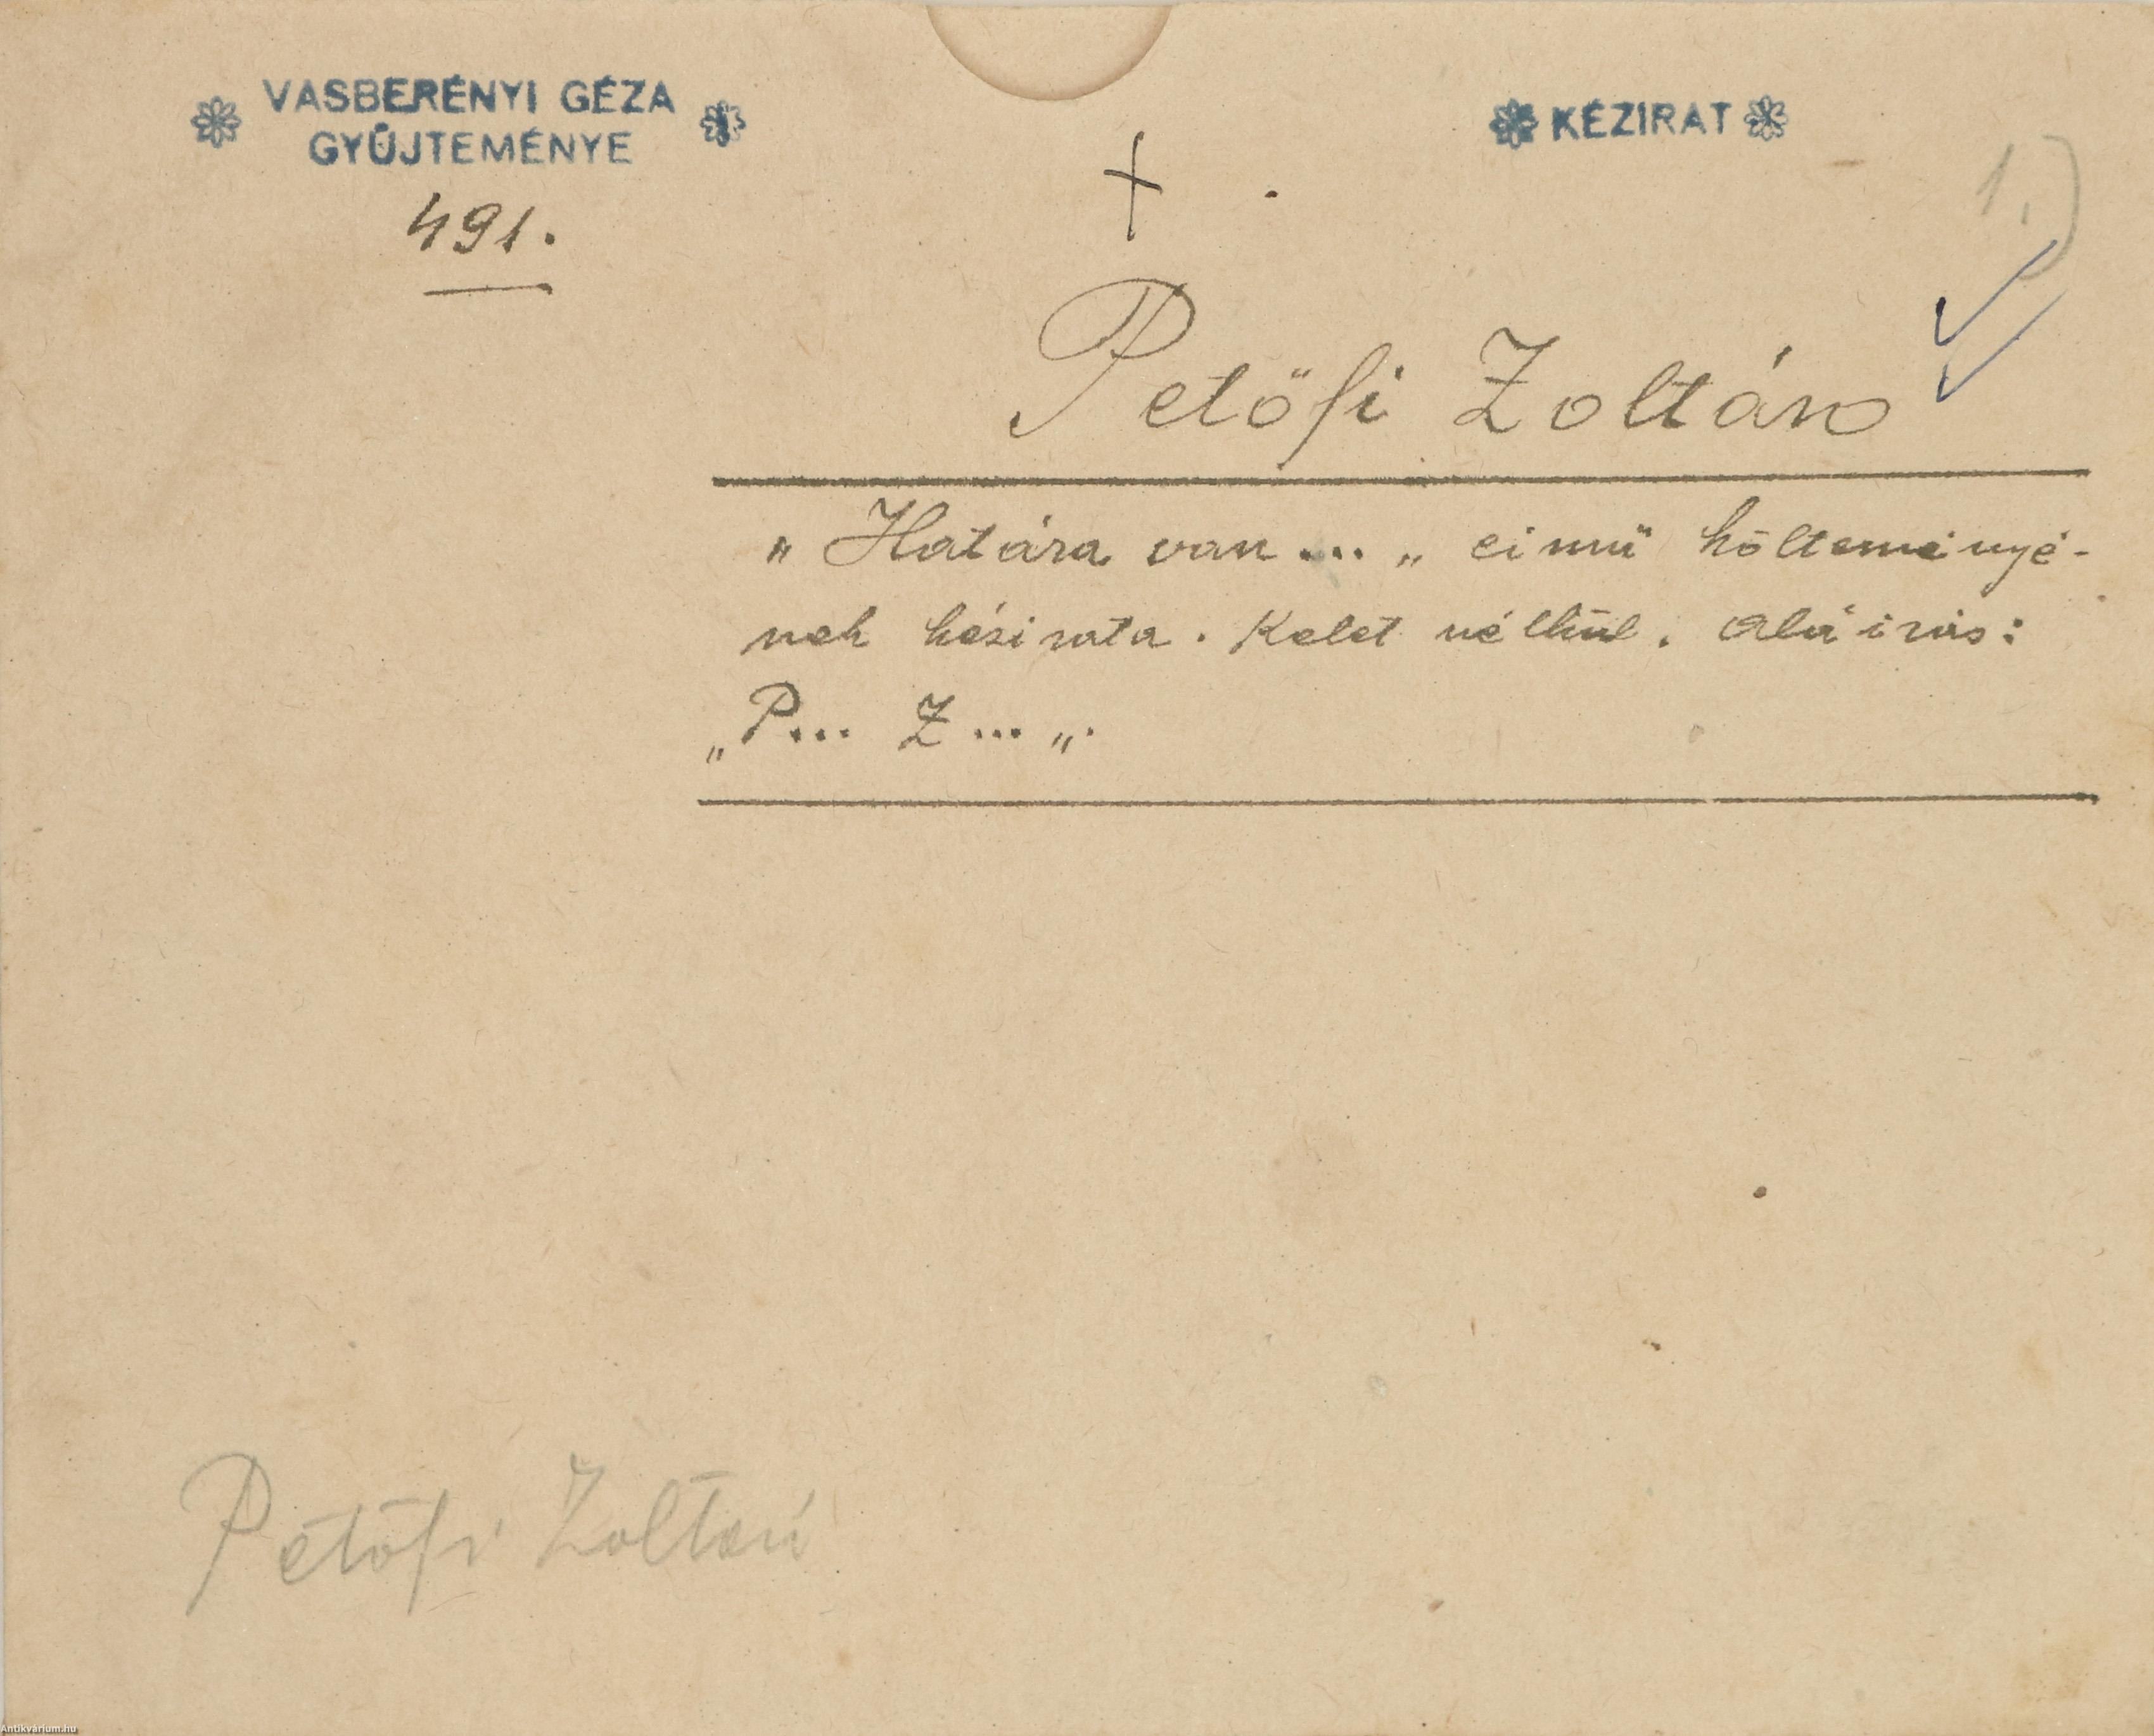 VASBERÉNYI GÉZA
GYŰJTEMÉNYE
KÉZIRAT
491.
+
1.)
Petőfi Zoltán
„Határa van... „ cimü költeményé-
nek kézirata. Kelet nélkül. Aláirás:
„P... Z... „.
Petőfi Zoltán
Antikvárium.hu